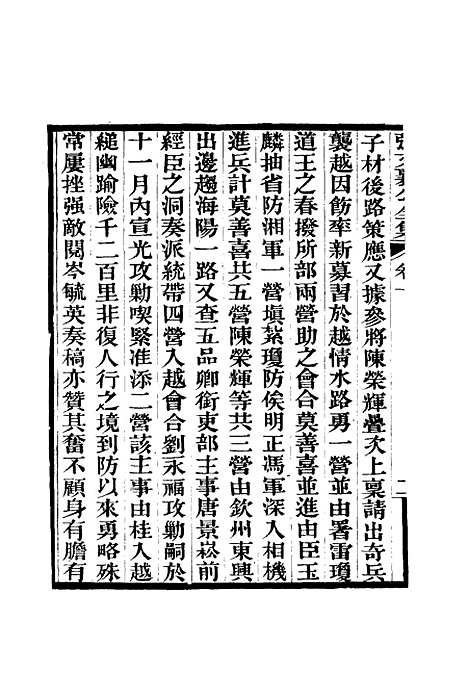 張文襄公全集 卷一 二
子材後路策應又據參將陳榮輝疊次上稟請出奇兵
襲越因飭率新募習於越情水路勇一營並由署雷瓊
道王之春撥所部兩營助之會合莫善喜並進由臣玉
麟抽省防湘軍一營塡紮瓊防俟明正馮軍深入相機
進兵計莫善喜共五營陳榮輝等共三營由欽州東興
出邊趨海陽一路又查五品卿銜吏部主事唐景崧前
經臣之洞奏派統帶四營入越會合劉永福攻勦嗣於
十一月內宣光攻勦喫緊准添二營該主事由桂入越
縋幽踰險千二百里非復人行之境到防以來勇略殊
常屢挫强敵閱岑毓英奏稿亦贊其奮不顧身有膽有